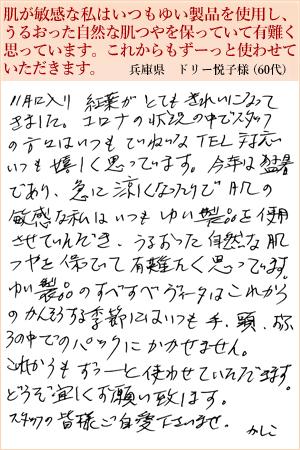 肌が敏感な私はいつもゆい製品を使用し、
うるおった自然な肌つやを保っていて有難く
思っています。これからもずーっと使わせて
いただきます。 兵庫県 ドリー悦子様（60代）
11月に入り 紅葉が とても きれいになって
きました。コロナの状況の中でスタッフ
の方々はいつも ていねいな TEL 対応
いつも嬉しく思っています。今年は猛暑
であり、急に涼しくなったりで 肌の
敏感な私は いつも ゆい製品を使用
させていただき、うるおった自然な肌
つやを保っていて有難たく思っています。
ゆい製品のすべすべウォーターはこれから
のかんそうする季節にはいつも 手、顔、
の中でのパックにかかせません。
これからも ずぅーと使わせていただきます。
どうぞ宜しくお願い致します。
スタッフの皆様ご自愛下さいませ。
かしこ